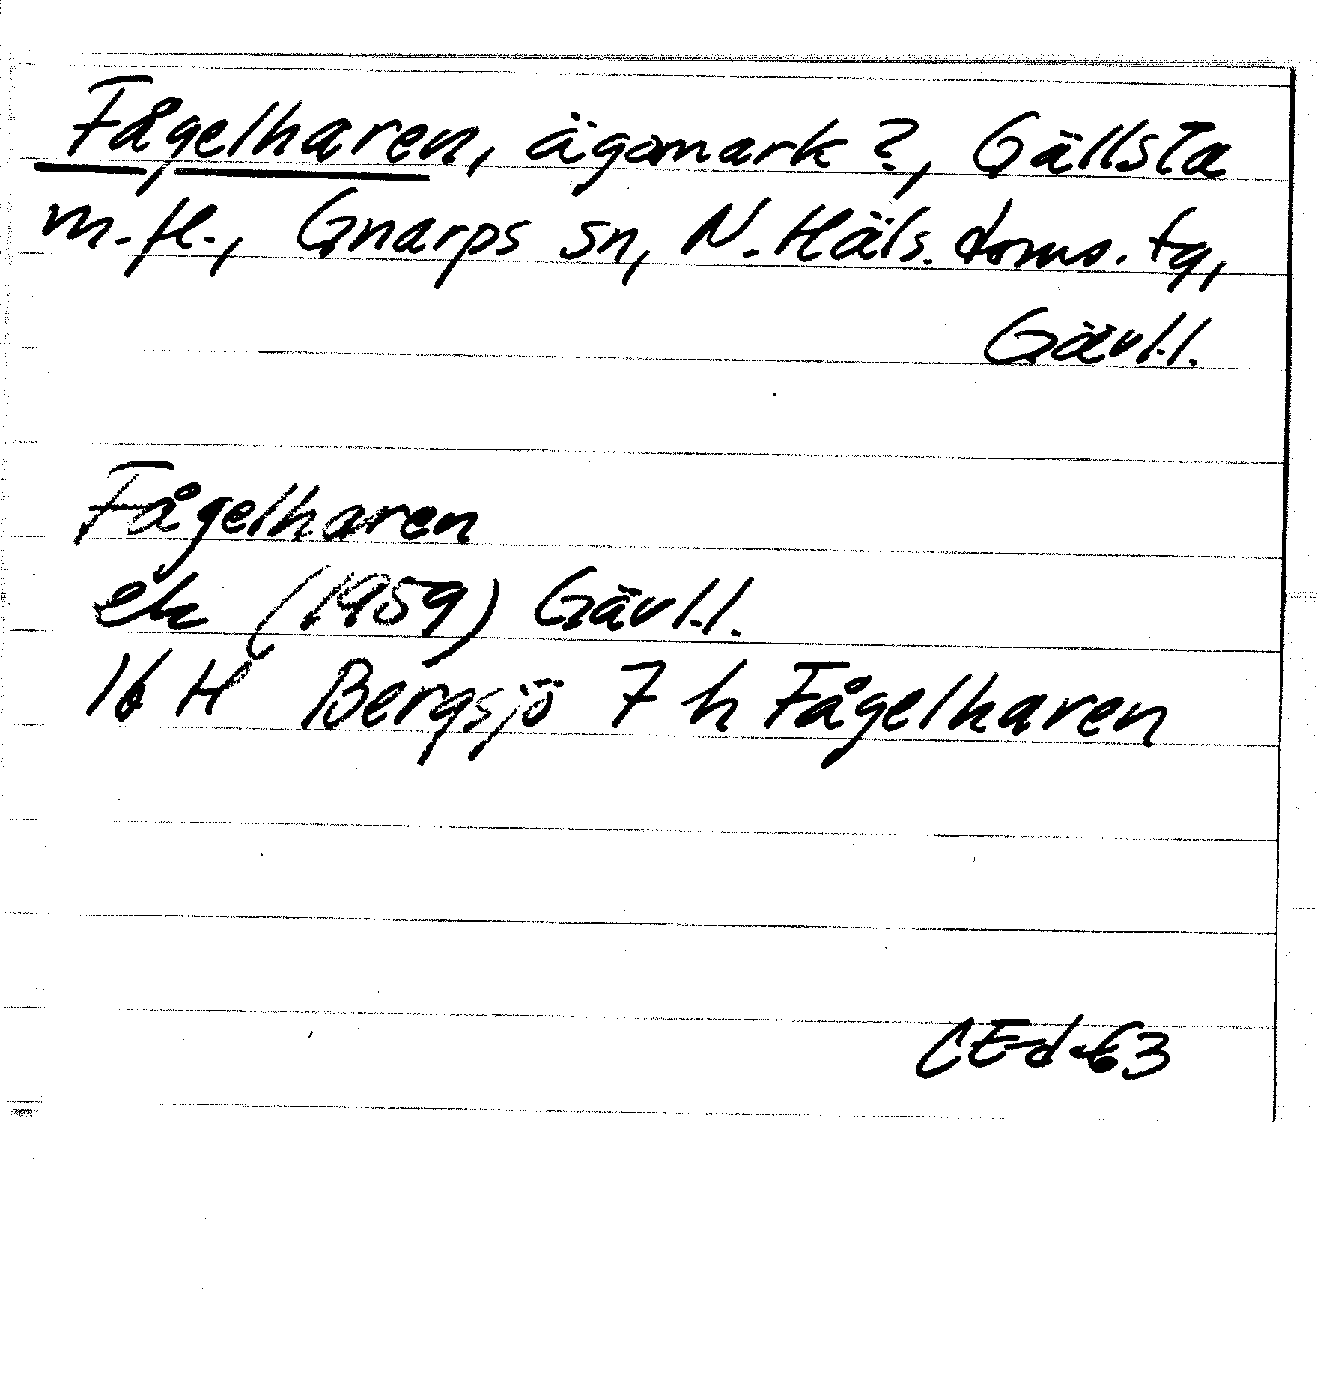 Fågelharen, ägomark?, Gällsta
m.fl., Gnarps sn, N. Häls. doms. tg,
Gävl.l.
Fågelharen
ek (1959) Gävl.l.
16 H Bergsjö 7 h Fågelharen
CEd-63